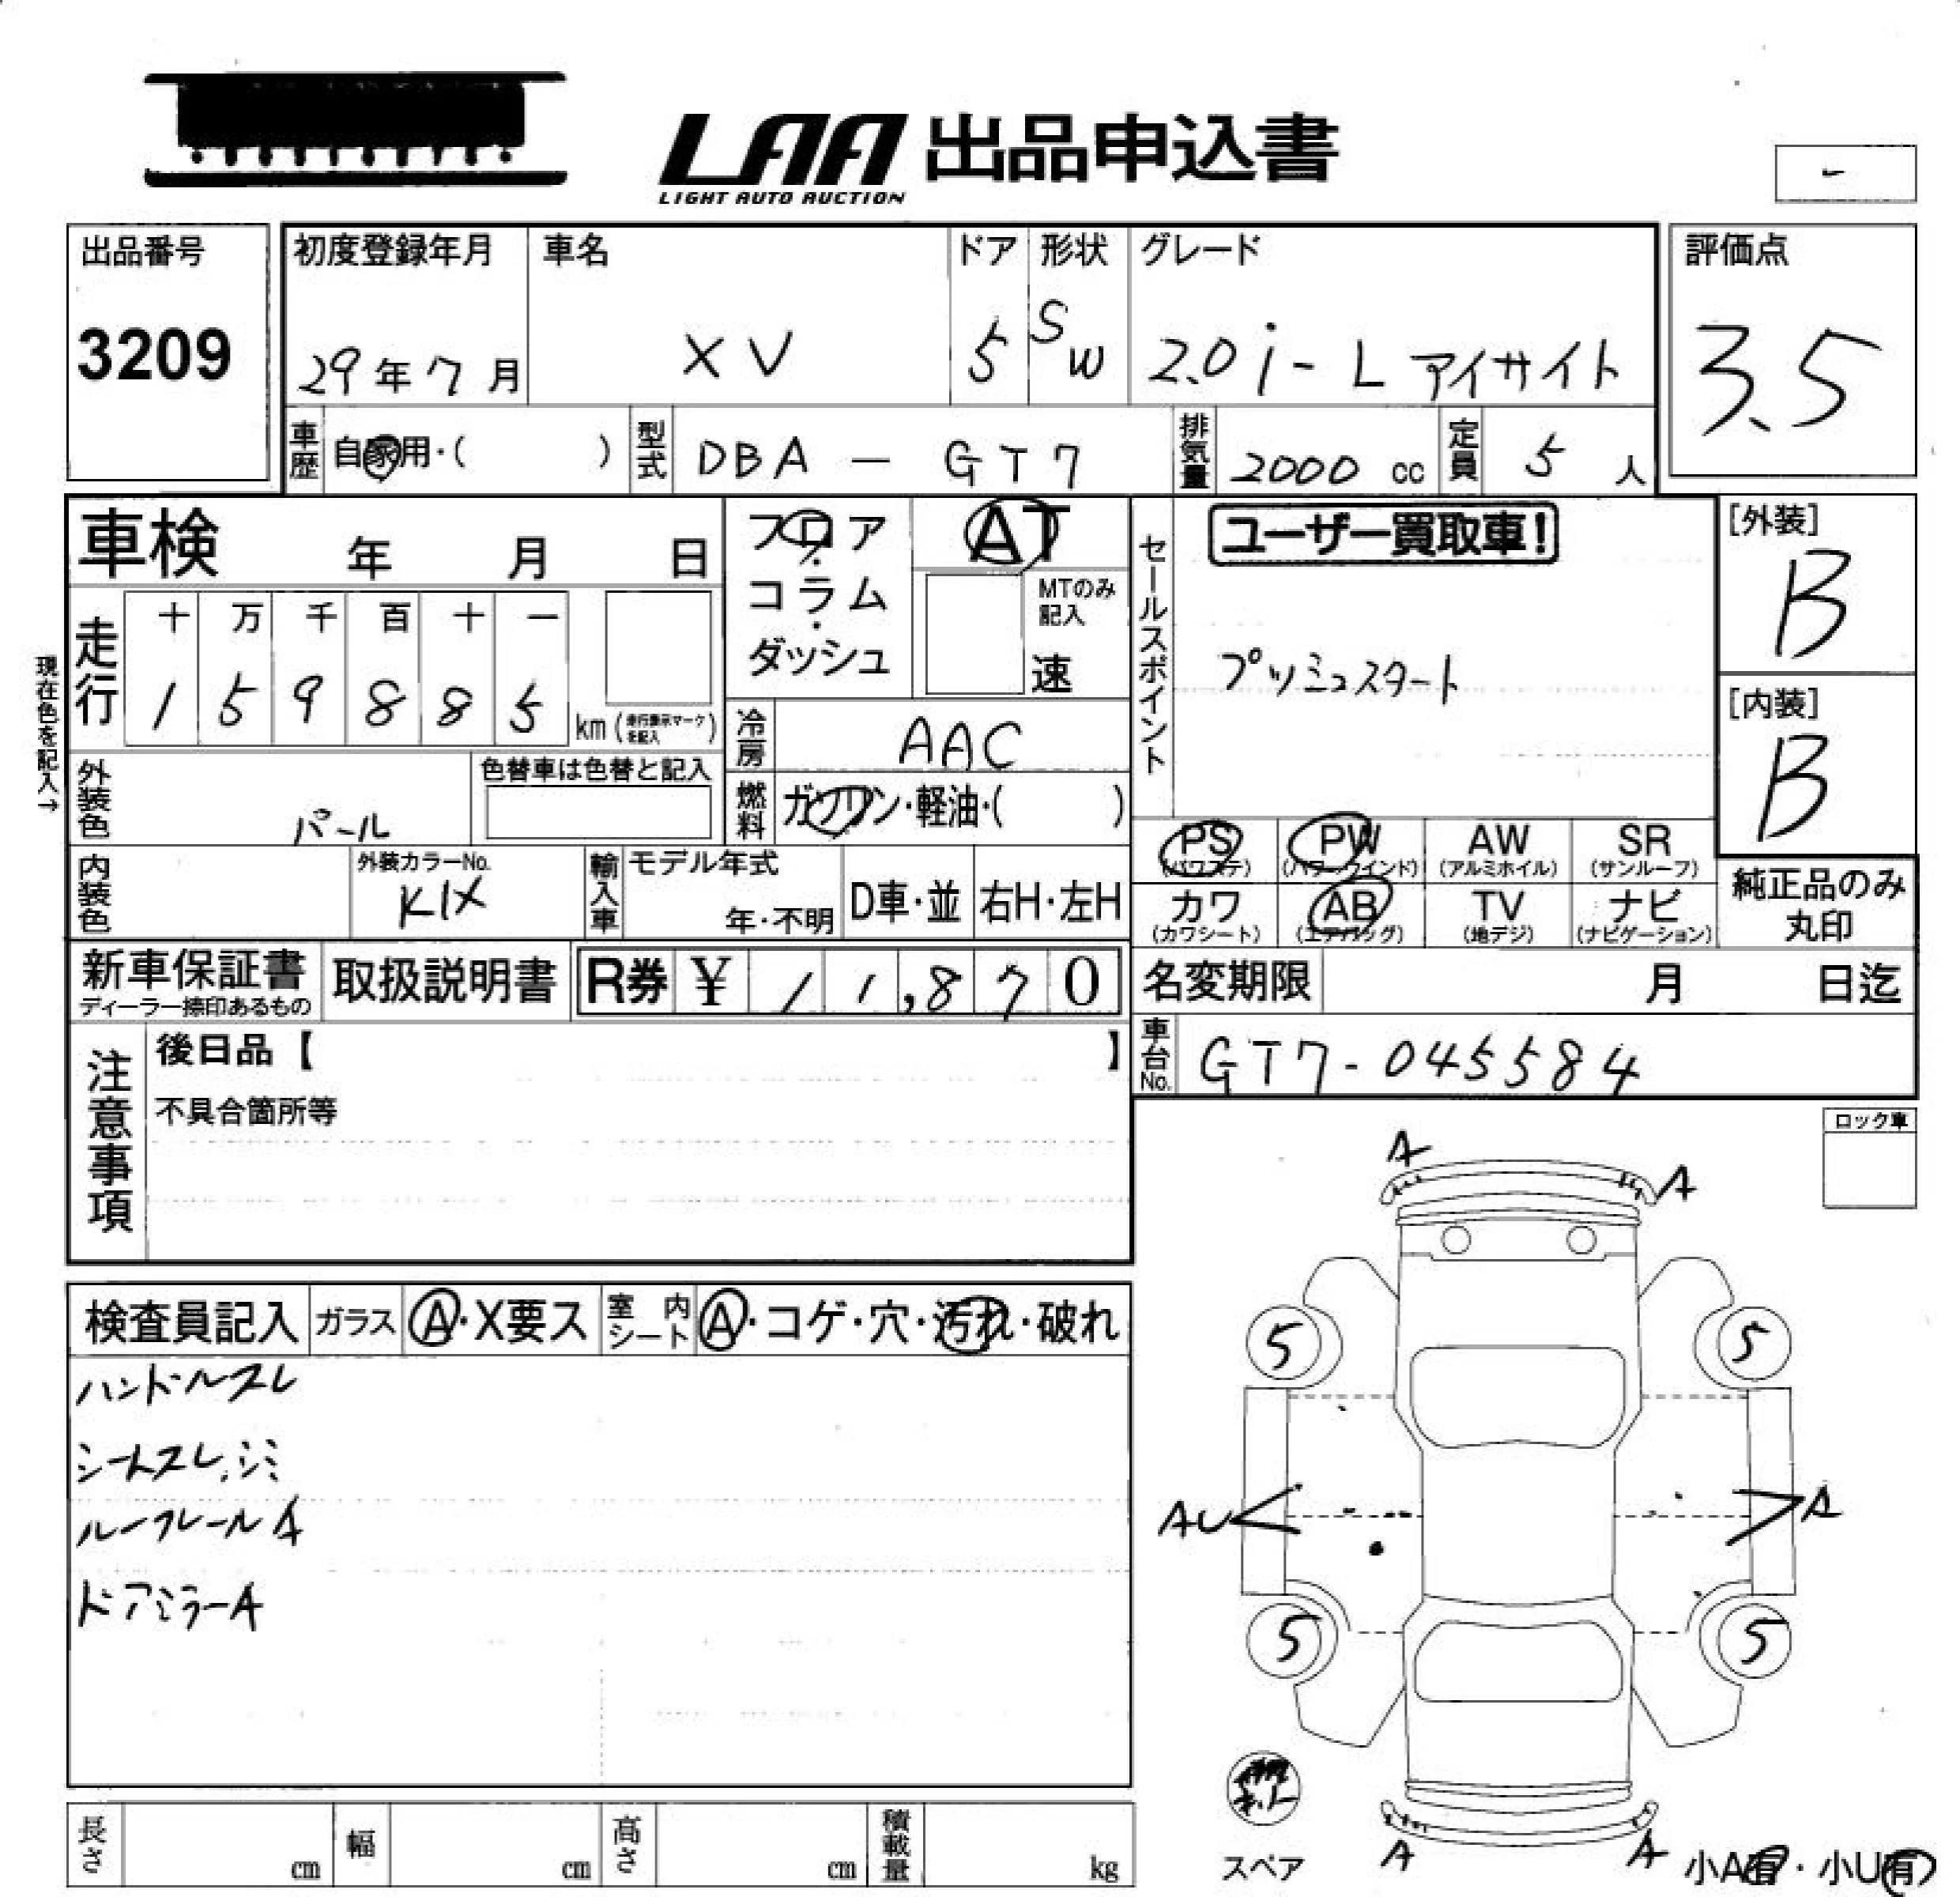 LAA 出品申込書
LIGHT AUTO AUCTION
出品番号
3209
初度登録年月
29年7月
車名
XV
ドア
5
形状
SW
グレード
2.0i-L アイサイト
評価点
3.5
車歴 自家用・( )
型式 DBA-GT7
排気量 2000 cc
定員 5 人
車検 年 月 日
走行
十 万 千 百 十 一
1 5 9 8 8 5 km (走行表示マークを記入)
現在色を記入→
フロア・コラム・ダッシュ
AT
MTのみ記入
速
冷房 AAC
燃料 ガソリン・軽油・( )
外装色 パール
色替車は色替と記入
内装色
外装カラーNo.
K1X
輸入車
モデル年式
年・不明
D車・並
右H・左H
セールスポイント
ユーザー買取車!
プッシュスタート
[外装]
B
[内装]
B
PS (パワステ)
PW (パワーウインド)
AW (アルミホイル)
SR (サンルーフ)
カワ (カワシート)
AB (エアバッグ)
TV (地デジ)
ナビ (ナビゲーション)
純正品のみ
丸印
新車保証書
ディーラー捺印あるもの
取扱説明書
R券 ¥ 11,870
名変期限 月 日迄
車台No. GT7-045584
注意事項
後日品【 】
不具合箇所等
ロック車
検査員記入 ガラス A・X要ス 室内シート A・コゲ・穴・汚れ・破れ
ハンドルスレ
シートスレ、シミ
ルーフレールA
ドアミラーA
A
A
5
5
AU
A
5
5
スペア
A
A
小A有・小U有
長さ cm
幅 cm
高さ cm
積載量 kg